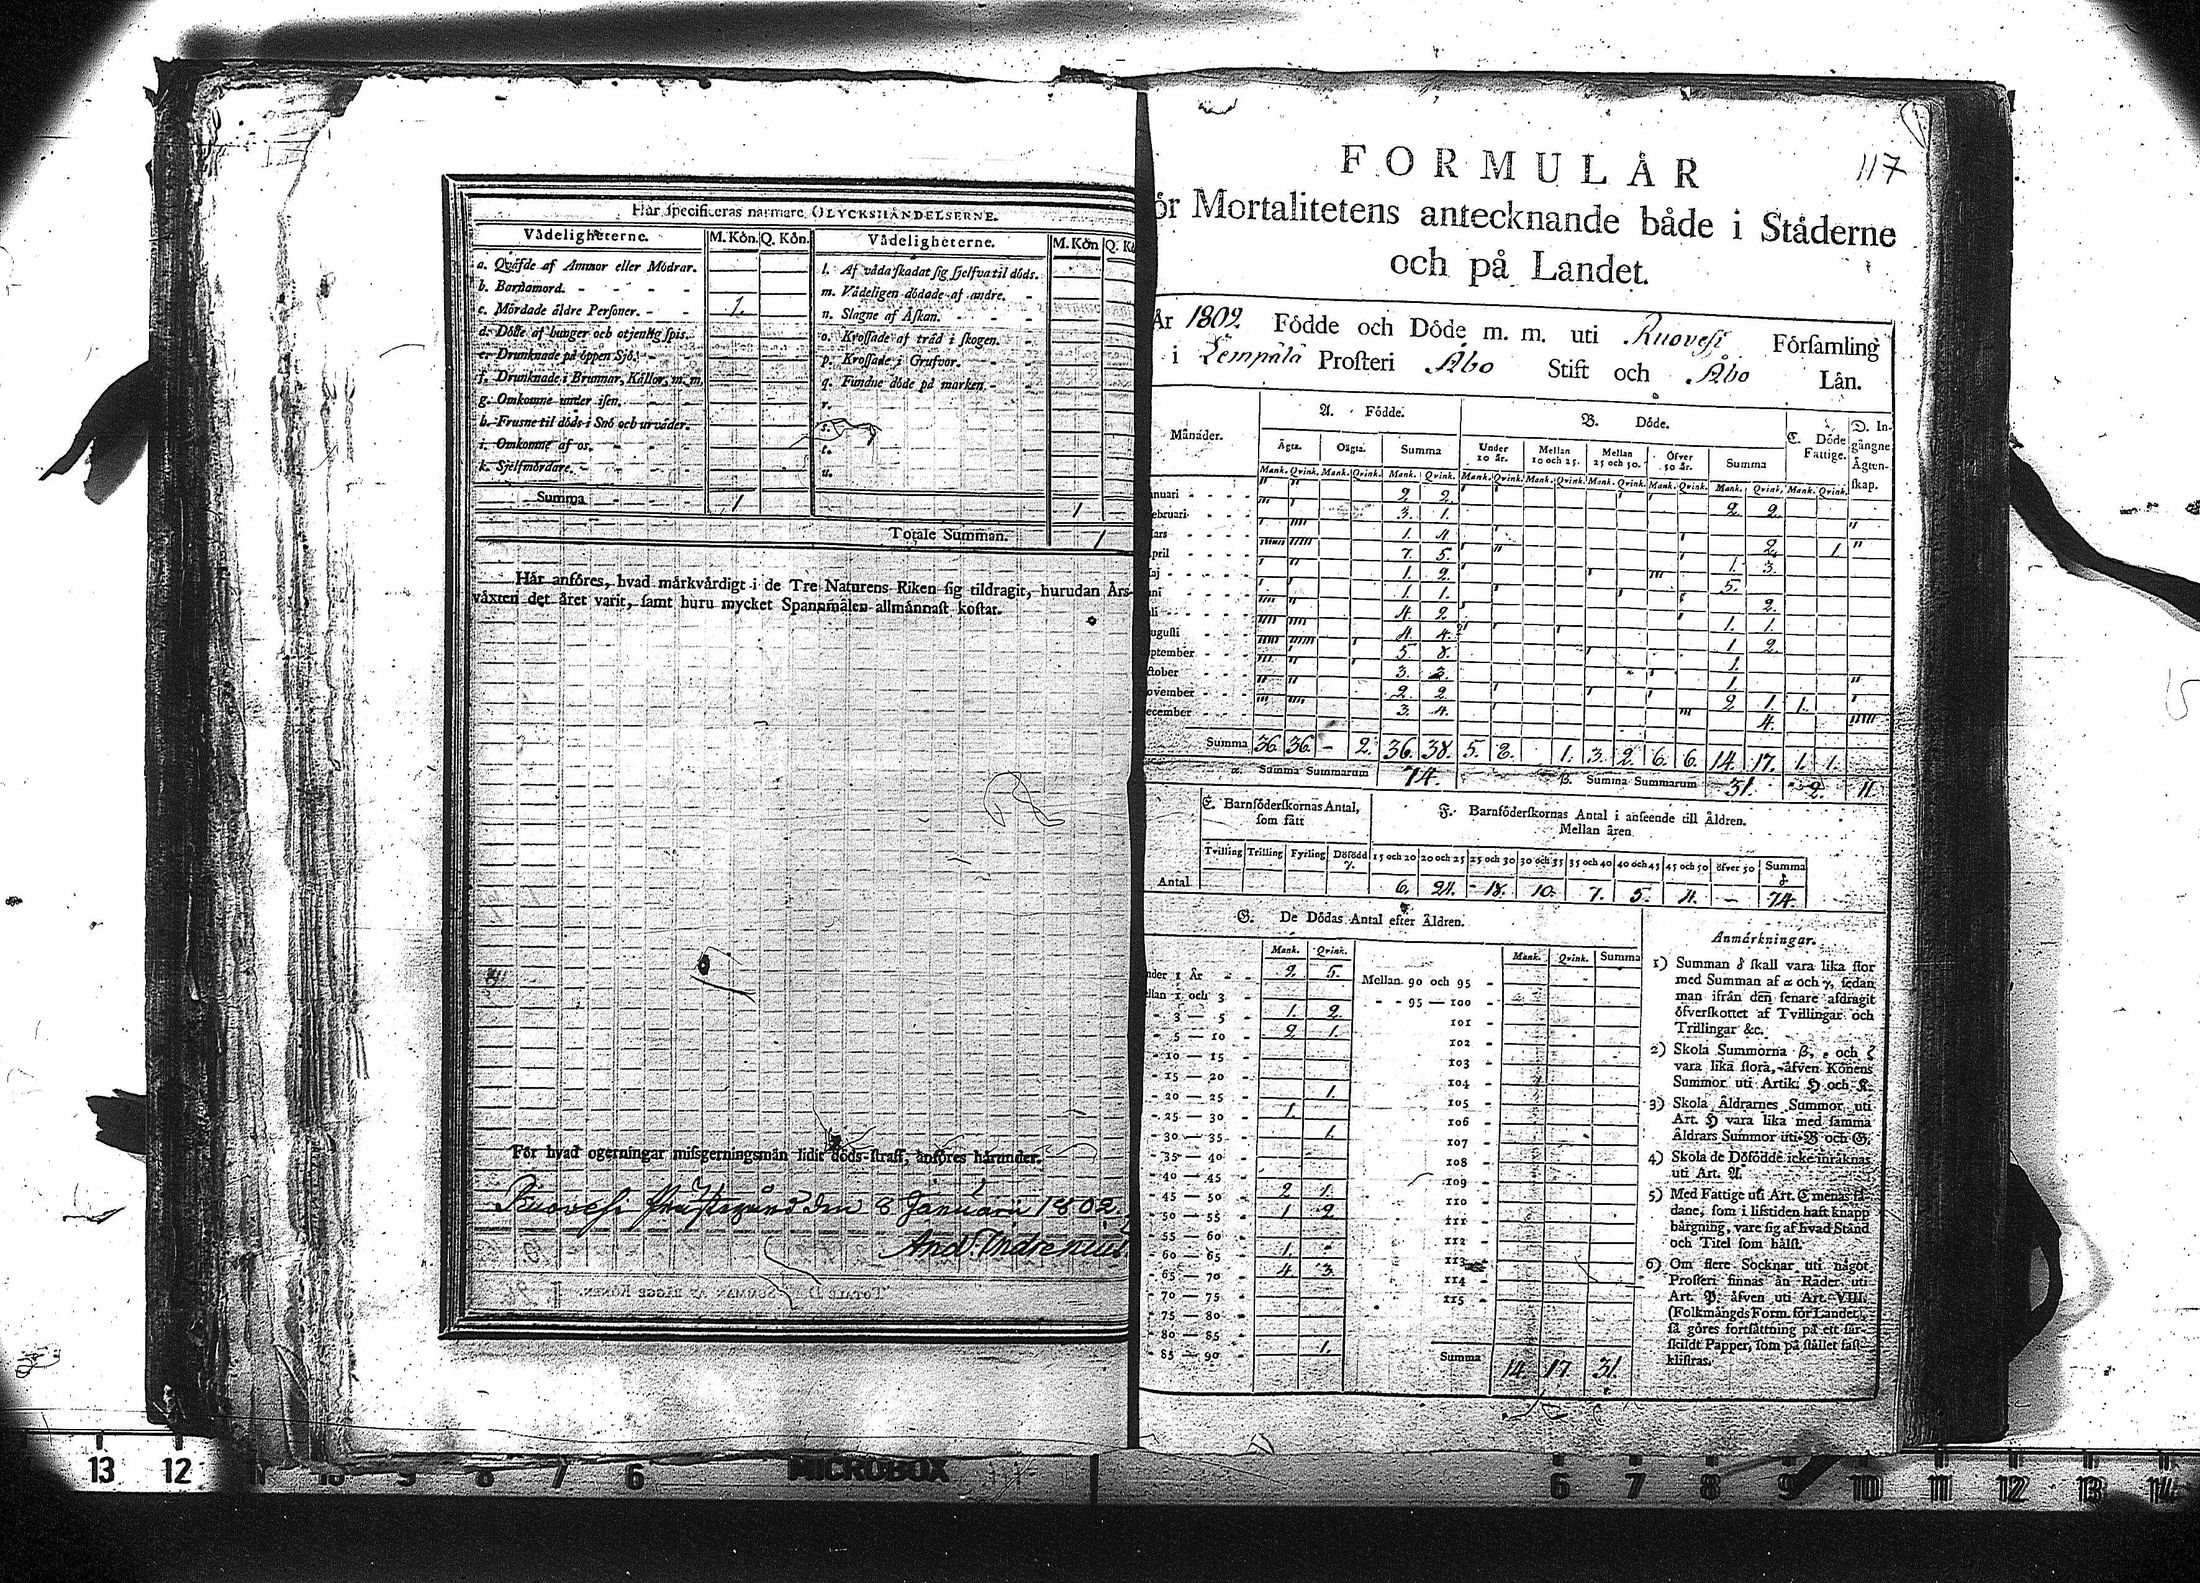 Här specificeras närmare OLYCKSHÄNDELSERNE.
Vådeligheterne. M. Kön. Q. Kön. Vådeligheterne. M. Kön
a. Qväfde af Ammor eller Mödrar.
b. Barnamord.
c. Mördade äldre Personer. 1.
d. Döde af hunger och otjenlig spis.
e. Drunknade på öppen Sjö.
f. Drunknade i Brunnar, Källor, m. m.
g. Omkomne under isen.
h. Frusne til döds i Snö och urväder.
i. Omkomne af os.
k. Sjelfmördare.
Summa 1
l. Af våda skadat sig sjelfva til döds.
m. Vådeligen dödade af andre.
n. Slagne af Åskan.
o. Krossade af träd i skogen.
p. Krossade i Grufvor.
q. Fundne döde på marken.
r.
s.
t.
u.
1
Totale Summan. 1
Här anföres, hvad märkvärdigt i de Tre Naturens Riken sig tildragit, hurudan Års-
växten det året varit, samt huru mycket Spannmålen allmännast kostar.
För hvad ogerningar missgerningsmän lidit döds-straff, anföres härunder.
Ruovesi Prästegård den 8 Januarii 1802
And. Indrenius
117
FORMULÄR
ör Mortalitetens antecknande både i Städerne
och på Landet.
År 1802. Födde och Döde m. m. uti Ruovesi Församling
i Lempälä Prosteri Åbo Stift och Åbo Län.
Månader. A. Födde. B. Döde. C. Döde Fattige. D. Ingångne Ägtenskap.
Ägta. Oägta. Summa Under 10 år. Mellan 10 och 25. Mellan 25 och 50. Öfver 50 år. Summa
Mank. Qvink. Mank. Qvink. Mank. Qvink. Mank. Qvink. Mank. Qvink. Mank. Qvink. Mank. Qvink. Mank. Qvink. Mank. Qvink.
anuari 2. 2.
ebruari 3. 1. 2. 2.
ars 1. 4.
pril 7. 5. 2. 1.
aj 1. 2. 1. 3.
uni 1. 1. 5.
li 4. 2. 2.
ugusti 4. 4. 1. 1.
eptember 5. 8. 1. 2.
ctober 3. 3. 1.
ovember 2. 2. 1.
ecember 3. 4. 2. 1. 1.
4.
Summa 36. 36. - 2. 36. 38. 5. 8. 1. 3. 2. 6. 6. 14. 17. 1. 1.
α. Summa Summarum 74. β. Summa Summarum 31. 2. 11.
E. Barnföderskornas Antal, som fått
F. Barnföderskornas Antal i anseende till Åldren.
Mellan åren
Tvilling Trilling Fyrling Dödfödd γ. 15 och 20 20 och 25 25 och 30 30 och 35 35 och 40 40 och 45 45 och 50 öfver 50 Summa δ
Antal 6. 24. 18. 10. 7. 5. 4. — 74.
G. De Dödas Antal efter Åldren.
Mank. Qvink.
nder 1 År 2. 5.
llan 1 och 3
3 — 5 1. 2.
5 — 10 2. 1.
10 — 15
15 — 20
20 — 25 1.
25 — 30 1.
30 — 35 1.
35 — 40
40 — 45
45 — 50 2. 1.
50 — 55 1. 2.
55 — 60
60 — 65 1.
65 — 70 4. 3.
70 — 75
75 — 80
80 — 85
85 — 90 1.
Mank. Qvink. Summa
Mellan 90 och 95
95 — 100
101
102
103
104
105
106
107
108
109
110
111
112
113
114
115
Summa 14 17 31.
Anmärkningar.
1) Summan δ skall vara lika stor
med Summan af α och γ, sedan
man ifrån den senare afdragit
öfverskottet af Tvillingar och
Trillingar &c.
2) Skola Summorna β, ε och ζ
vara lika stora, äfven Könens
Summor uti Artik. H och K.
3) Skola Åldrarnes Summor uti
Art. H vara lika med samma
Åldrars Summor uti B och G.
4) Skola de Dödfödde icke inräknas
uti Art. A.
5) Med Fattige uti Art. C menas så-
dane, som i lifstiden haft knapp
bärgning, vare sig af hvad Stånd
och Titel som hälst.
6) Om flere Socknar uti något
Prosteri finnas än Rader uti
Art. P, äfven uti Art. VIII.
(Folkmängds Form. för Landet),
så göres fortsättning på ett sär-
skildt Papper, som på stället fast-
klistras.
13 12 11 10 9 8 7 6 MICROBOX 6 7 8 9 10 11 12 13 14